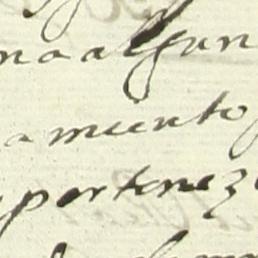 no algun
amiento
pertenez